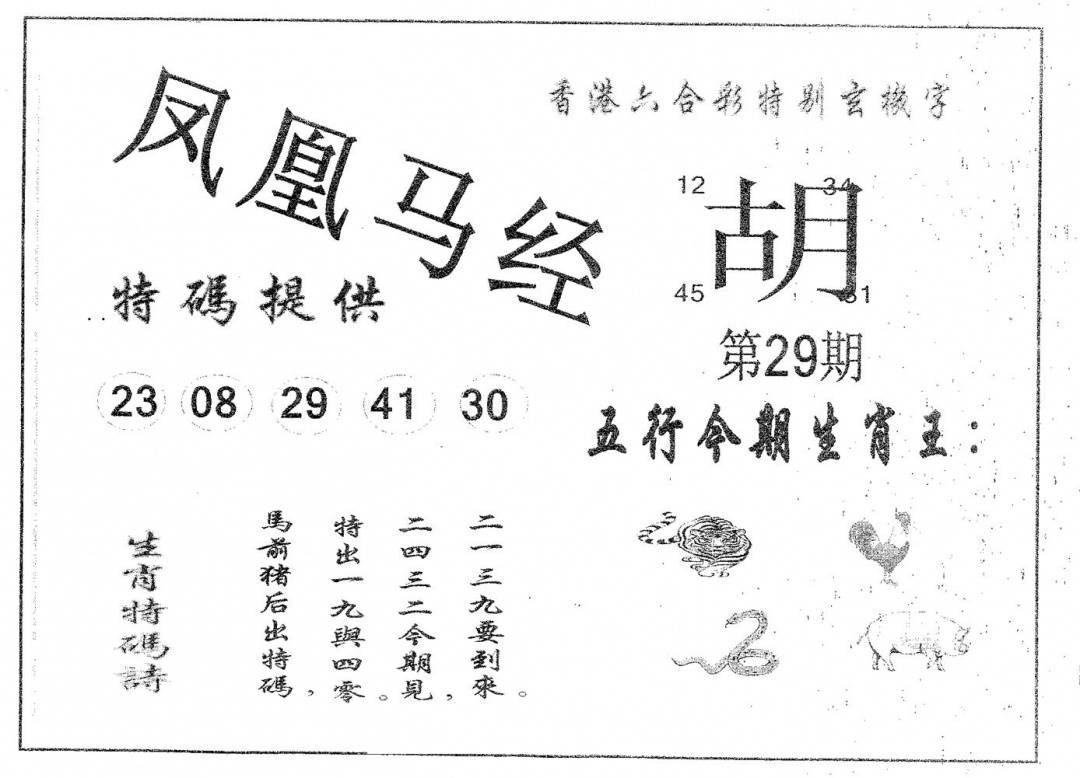 凤凰马经
特碼提供
23 08 29 41 30
香港六合彩特别玄機字
12 34
胡
45
第29期
五行今期生肖王：
生肖特碼詩
馬前猪后出特碼，
特出一九與四零。
二四三二今期見，
二一三九要到來。